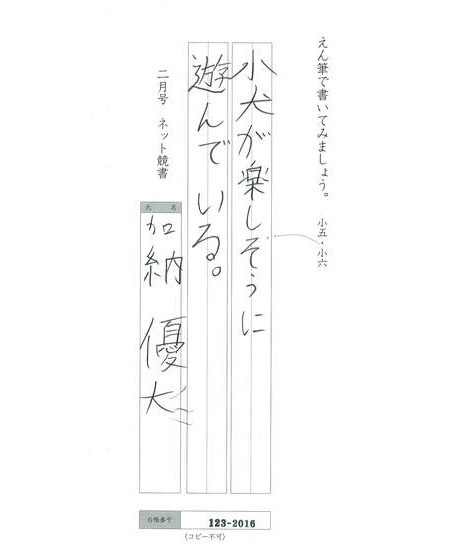 えん筆で書いてみましょう。 小五・小六
小犬が楽しそうに
遊んでいる。
二月号 ネット競書
氏名
加納 優大
台帳番号 123-2016
(コピー不可)